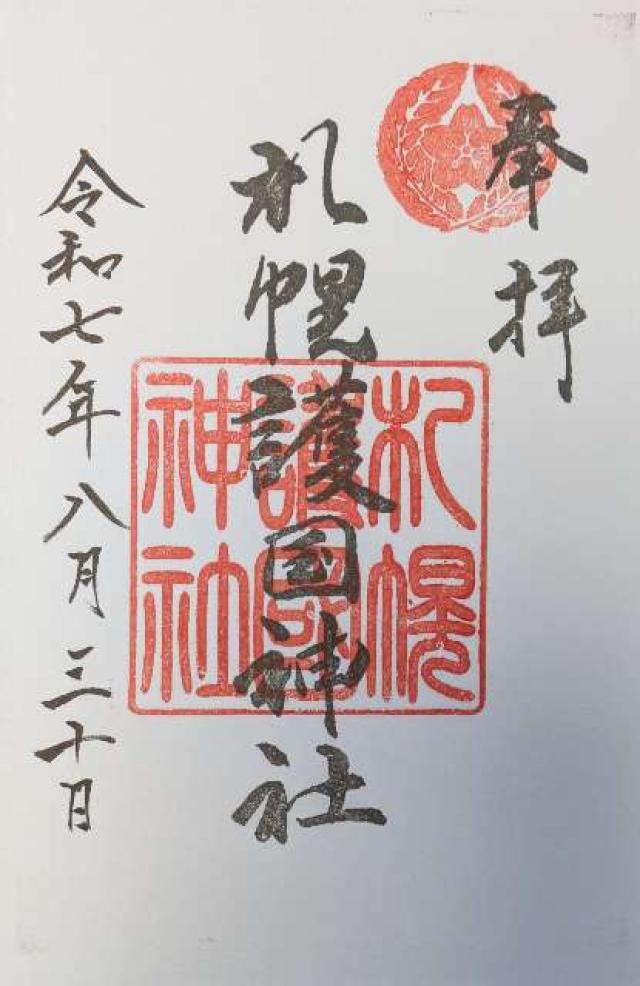 奉拝
札幌護国神社
令和七年八月三十日
札幌
護國
神社